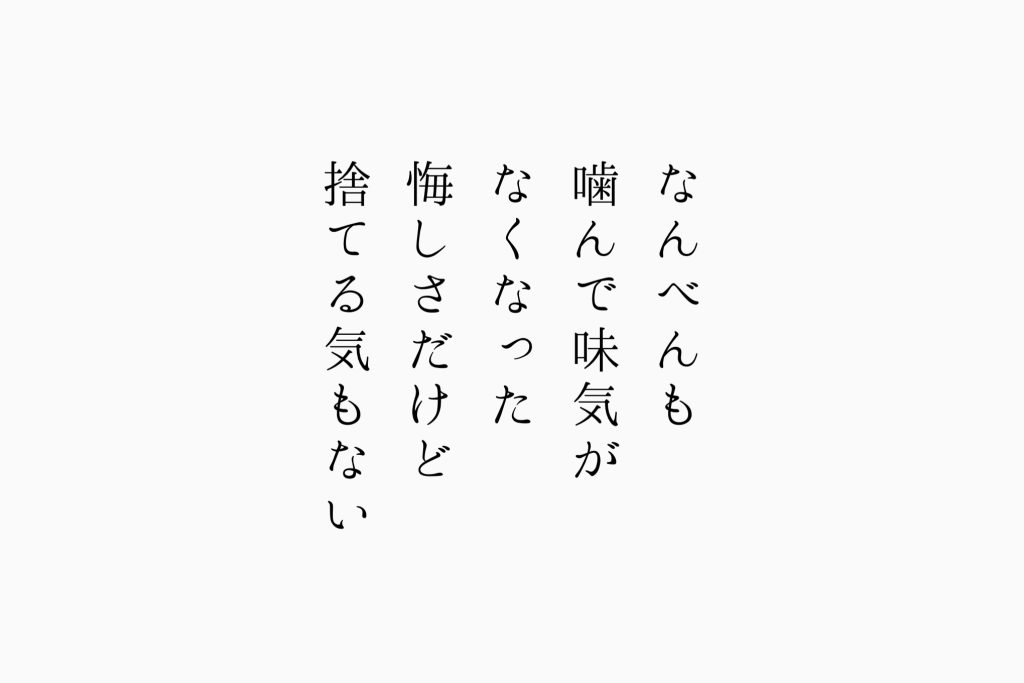 なんべんも
噛んで味気が
なくなった
悔しさだけど
捨てる気もない